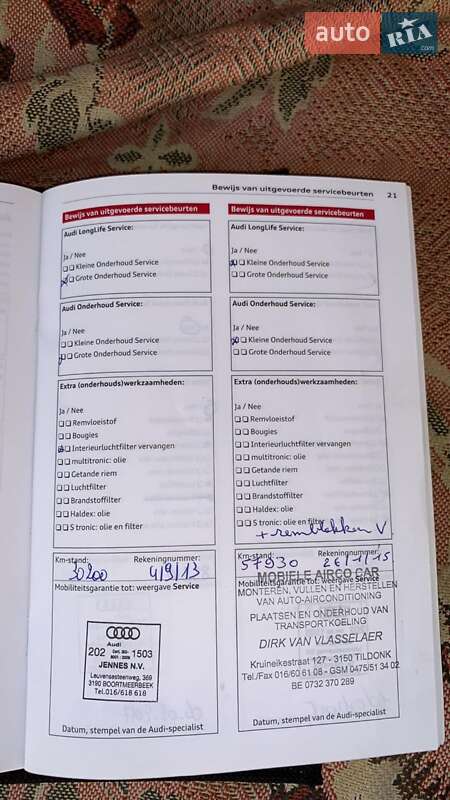 auto RIA.com
Bewijs van uitgevoerde servicebeurten 21
Bewijs van uitgevoerde servicebeurten
Audi LongLife Service:
Ja / Nee
Kleine Onderhoud Service
Grote Onderhoud Service
Audi Onderhoud Service:
Ja / Nee
Kleine Onderhoud Service
Grote Onderhoud Service
Extra (onderhouds)werkzaamheden:
Ja / Nee
Remvloeistof
Bougies
Interieurluchtfilter vervangen
multitronic: olie
Getande riem
Luchtfilter
Brandstoffilter
Haldex: olie
S tronic: olie en filter
Km-stand: Rekeningnummer:
30200 4/9/13
Mobiliteitsgarantie tot: weergave Service
Audi
202 1503
JENNES N.V.
Leuvensesteenweg, 369
3190 BOORTMEERBEEK
Tel.016/618 618
Datum, stempel van de Audi-specialist
Bewijs van uitgevoerde servicebeurten
Audi LongLife Service:
Ja / Nee
Kleine Onderhoud Service
Grote Onderhoud Service
Audi Onderhoud Service:
Ja / Nee
Kleine Onderhoud Service
Grote Onderhoud Service
Extra (onderhouds)werkzaamheden:
Ja / Nee
Remvloeistof
Bougies
Interieurluchtfilter vervangen
multitronic: olie
Getande riem
Luchtfilter
Brandstoffilter
Haldex: olie
S tronic: olie en filter
+ remblokken V
Km-stand: Rekeningnummer:
57930 26/1/15
MOBIELE AIRCO CAR
Mobiliteitsgarantie tot: weergave Service
MONTEREN, VULLEN EN HERSTELLEN
VAN AUTO-AIRCONDITIONING
PLAATSEN EN ONDERHOUD VAN
TRANSPORTKOELING
DIRK VAN VLASSELAER
Kruineikestraat 127 - 3150 TILDONK
Tel./Fax 016/60 61 08 - GSM 0475/51 34 02
BE 0732 370 289
Datum, stempel van de Audi-specialist